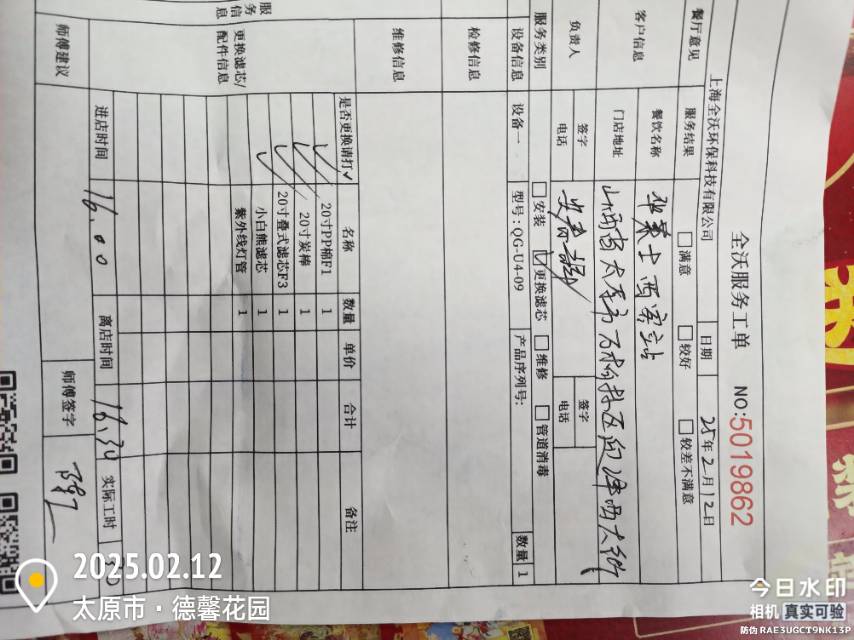 全沃服务工单 NO:5019862
上海全沃环保科技有限公司 日期 25年2月12日
餐厅意见 服务结果 满意 较好 较差不满意
客户信息 餐饮名称
门店地址
负责人 签字 签字
电话 电话
服务类别 安装 更换滤芯 维修 管道消毒
设备信息 设备一 型号:QG-U4-09 产品序列号: 数量 1
检修信息
维修信息
服务信息
更换滤芯/配件信息
是否更换请打✓ 名称 数量 单价 合计 备注
✓ 20寸PP棉F1 1
✓ 20寸炭棒 1
✓ 20寸叠式滤芯F3 1
✓ 小白熊滤芯 1
紫外线灯管 1
进店时间 16:00 离店时间 16:30 实际工时
师傅建议 师傅签字
2025.02.12
太原市·德馨花园
今日水印
相机 真实可验
防伪 RAE3UGCT9NK13P